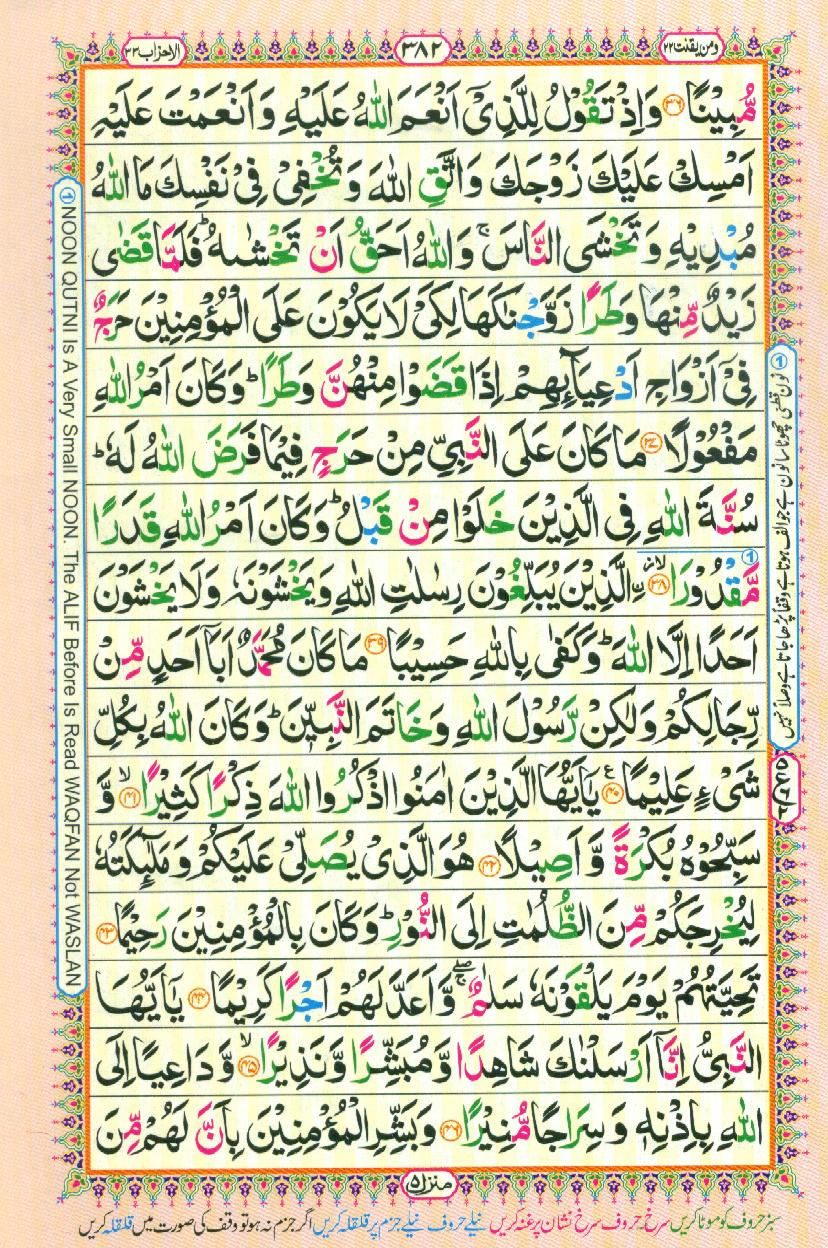 ومن يقنت ٢٢
٣٨٢
الاحزاب ٣٣
مُّبِيْنًا ﴿٣٦﴾ وَاِذْ تَقُوْلُ لِلَّذِيْۤ اَنْعَمَ اللّٰهُ عَلَيْهِ وَاَنْعَمْتَ عَلَيْهِ
اَمْسِكْ عَلَيْكَ زَوْجَكَ وَاتَّقِ اللّٰهَ وَتُخْفِيْ فِيْ نَفْسِكَ مَا اللّٰهُ
مُبْدِيْهِ وَتَخْشَى النَّاسَ ۚ وَاللّٰهُ اَحَقُّ اَنْ تَخْشٰىهُ ؕ فَلَمَّا قَضٰى
زَيْدٌ مِّنْهَا وَطَرًا زَوَّجْنٰكَهَا لِكَيْ لَا يَكُوْنَ عَلَى الْمُؤْمِنِيْنَ حَرَجٌ
فِيْۤ اَزْوَاجِ اَدْعِيَآىِٕهِمْ اِذَا قَضَوْا مِنْهُنَّ وَطَرًا ؕ وَكَانَ اَمْرُ اللّٰهِ
مَفْعُوْلًا ﴿٣٧﴾ مَا كَانَ عَلَى النَّبِيِّ مِنْ حَرَجٍ فِيْمَا فَرَضَ اللّٰهُ لَهٗ ؕ
سُنَّةَ اللّٰهِ فِي الَّذِيْنَ خَلَوْا مِنْ قَبْلُ ؕ وَكَانَ اَمْرُ اللّٰهِ قَدَرًا
مَّقْدُوْرًا ﴿٣٨﴾ ِ۟الَّذِيْنَ يُبَلِّغُوْنَ رِسٰلٰتِ اللّٰهِ وَيَخْشَوْنَهٗ وَلَا يَخْشَوْنَ
اَحَدًا اِلَّا اللّٰهَ ؕ وَكَفٰى بِاللّٰهِ حَسِيْبًا ﴿٣٩﴾ مَا كَانَ مُحَمَّدٌ اَبَاۤ اَحَدٍ مِّنْ
رِّجَالِكُمْ وَلٰكِنْ رَّسُوْلَ اللّٰهِ وَخَاتَمَ النَّبِيّٖنَ ؕ وَكَانَ اللّٰهُ بِكُلِّ
شَيْءٍ عَلِيْمًا ﴿٤٠﴾ يٰۤاَيُّهَا الَّذِيْنَ اٰمَنُوا اذْكُرُوا اللّٰهَ ذِكْرًا كَثِيْرًا ﴿٤١﴾ وَّ
سَبِّحُوْهُ بُكْرَةً وَّاَصِيْلًا ﴿٤٢﴾ هُوَ الَّذِيْ يُصَلِّيْ عَلَيْكُمْ وَمَلٰٓىِٕكَتُهٗ
لِيُخْرِجَكُمْ مِّنَ الظُّلُمٰتِ اِلَى النُّوْرِ ؕ وَكَانَ بِالْمُؤْمِنِيْنَ رَحِيْمًا ﴿٤٣﴾
تَحِيَّتُهُمْ يَوْمَ يَلْقَوْنَهٗ سَلٰمٌ ۖۚ وَاَعَدَّ لَهُمْ اَجْرًا كَرِيْمًا ﴿٤٤﴾ يٰۤاَيُّهَا
النَّبِيُّ اِنَّاۤ اَرْسَلْنٰكَ شَاهِدًا وَّمُبَشِّرًا وَّنَذِيْرًا ﴿٤٥﴾ وَّدَاعِيًا اِلَى
اللّٰهِ بِاِذْنِهٖ وَسِرَاجًا مُّنِيْرًا ﴿٤٦﴾ وَبَشِّرِ الْمُؤْمِنِيْنَ بِاَنَّ لَهُمْ مِّنَ
منزل ٥
سبز حروف کو موٹا کریں سرخ حروف سرخ نشان پر غنہ کریں نیلے حروف نیلے جزم پر قلقلہ کریں اگر جزم نہ ہو تو وقف کی صورت میں قلقلہ کریں
① NOON QUTNI Is A Very Small NOON. The ALIF Before Is Read WAQFAN Not WASLAN
① نون قطنی چھوٹا سا نون ہے جو الف ہوتا ہے وقفاً پڑھا جاتا ہے وصلاً نہیں